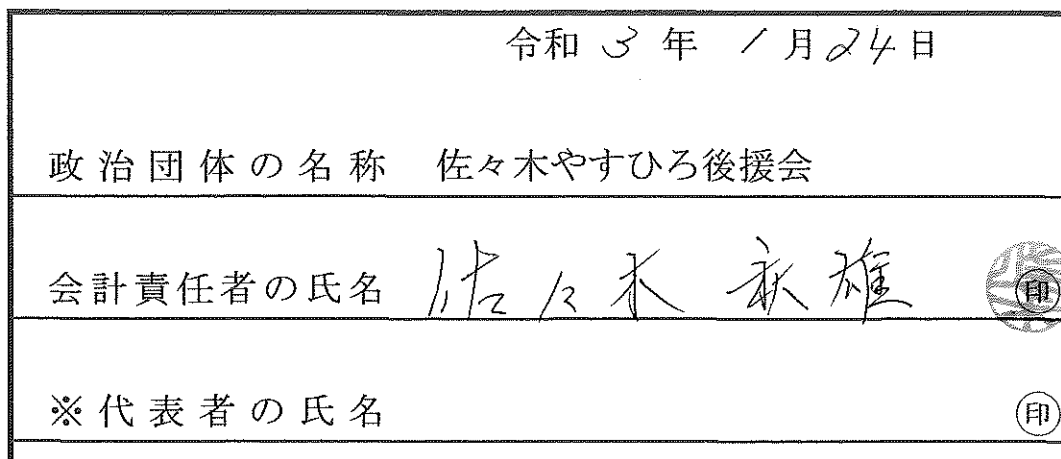 令和 3 年 1 月 24 日
政治団体の名称 佐々木やすひろ後援会
会計責任者の氏名 佐々木 秋雄 ㊞
※代表者の氏名 ㊞